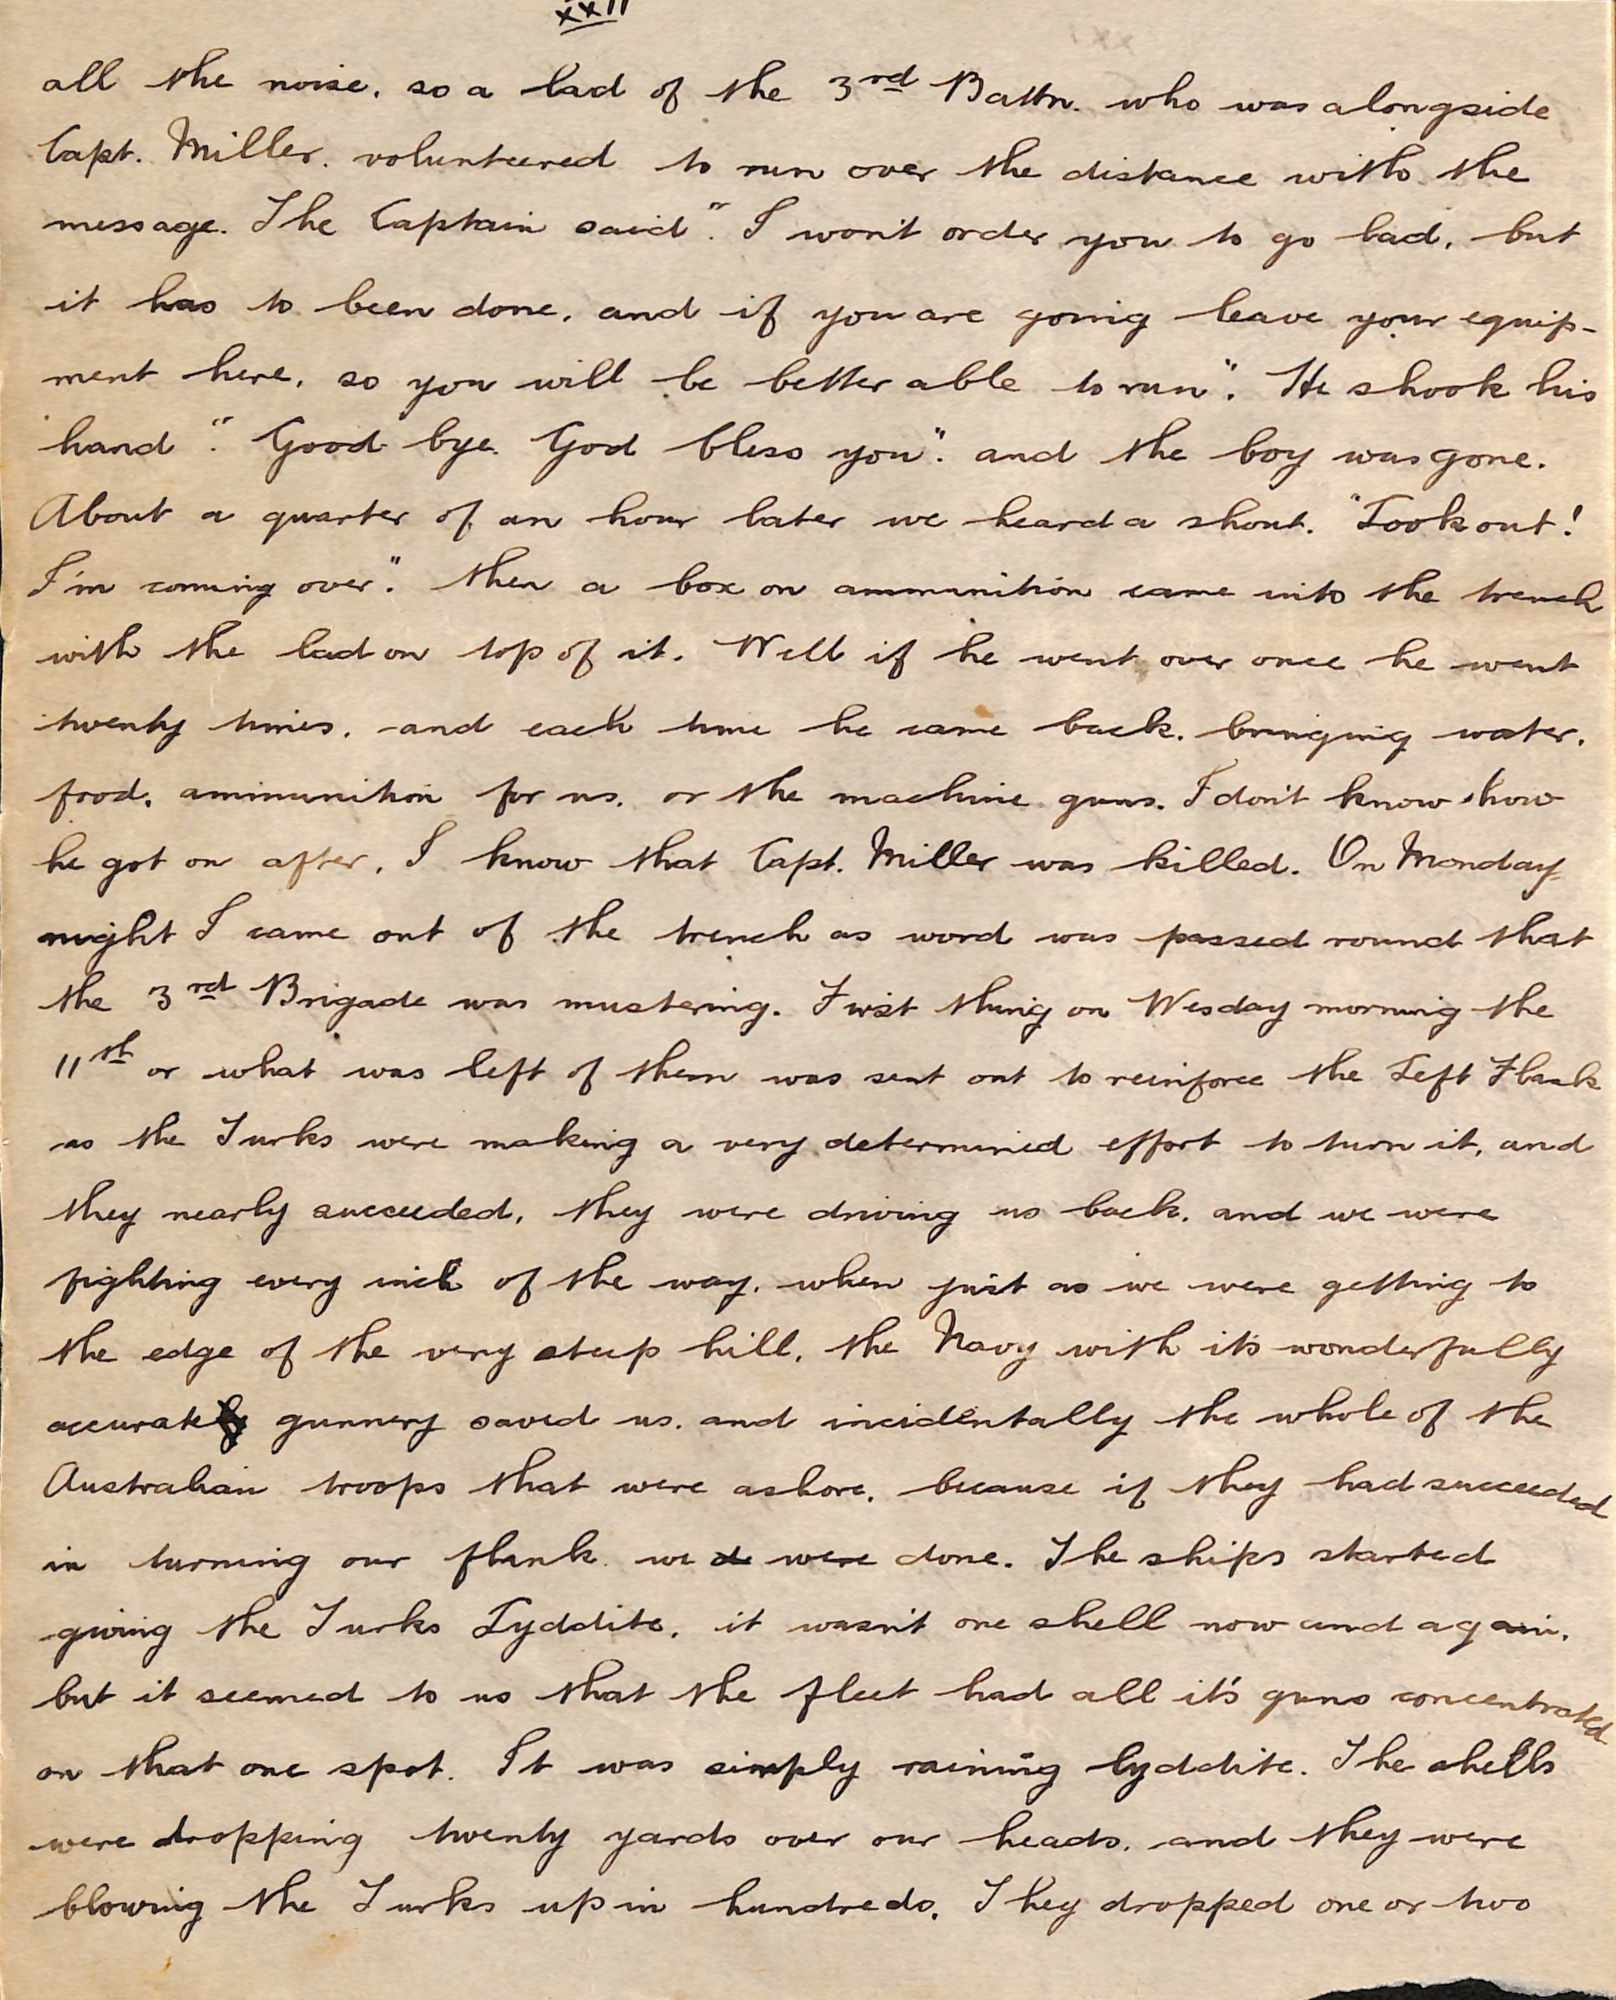 XXII
all the noise. so a lad of the 3rd Battn. who was alongside
Capt. Miller. volunteered to run over the distance with the
message. The Captain said ". I won't order you to go lad, but
it has to been done. and if you are going leave your equip-
ment here. so you will be better able to run". He shook his
hand ". Good bye. God bless you". and the boy was gone.
About a quarter of an hour later we heard a shout. "Look out!
I'm coming over". then a box on ammunition came into the trench
with the lad on top of it. Well if he went over once he went
twenty times. and each time he came back. bringing water.
food. ammunition for us. or the machine guns. I don't know how
he got on after. I know that Capt. Miller was killed. On Monday
night I came out of the trench as word was passed round that
the 3rd Brigade was mustering. First thing on Wesday morning the
11th or what was left of them was sent out to reinforce the Left Flank
as the Turks were making a very determined effort to turn it. and
they nearly succeeded. they were driving us back. and we were
fighting every inch of the way. when just as we were getting to
the edge of the very steep hill. the Navy with it's wonderfully
accurate gunnery saved us. and incidentally the whole of the
Australian troops that were ashore. because if they had succeeded
in turning our flank we d were done. The ships started
giving the Turks Lyddite. it wasn't one shell now and again.
but it seemed to us that the fleet had all it's guns concentrated
on that one spot. It was simply raining lyddite. The shells
were dropping twenty yards over our heads. and they were
blowing the Turks up in hundreds. They dropped one or two